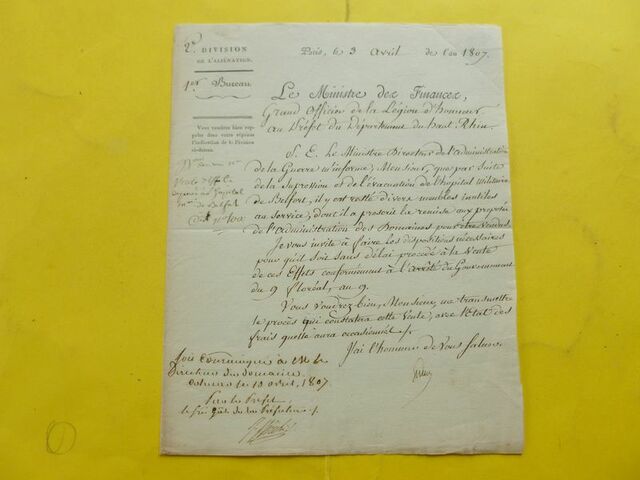 2e. DIVISION
DE L'ALIÉNATION.
1er Bureau.
Vous voudrez bien rap-
peler dans votre réponse
l'indication de la Division
ci-dessus.
Vente d'effets
hôpital
de Belfort
Paris, le 3 Avril de l'an 1807.
Le Ministre des Finances,
Grand Officier de la Légion d'honneur
Au Préfet du Département du haut Rhin
S. E. Le Ministre Directeur de l'administration
de la Guerre m'informe, Monsieur, que par suite
de la supression et de l'évacuation de l'hopital militaire
de Belfort, il y est resté divers meubles inutiles
au service, dont il a prescrit la remise aux préposés
de l'administration des Domaines pour être vendus.
Je vous invite à faire les dispositions nécessaires
pour qu'il soit sans délai procédé à la vente
de ces Effets conformément à l'arrêté du Gouvernement
du 9 floréal, an 9.
Vous voudrez bien, Monsieur, me transmettre
le procès qui constatera cette vente, avec l'état des
frais qu'elle aura occasionnés.
J'ai l'honneur de vous saluer.
Soit communiqué à M. le
Directeur des domaines
Colmar le 10 avril, 1807.
Pour le Préfet
le Gal de la Préfecture